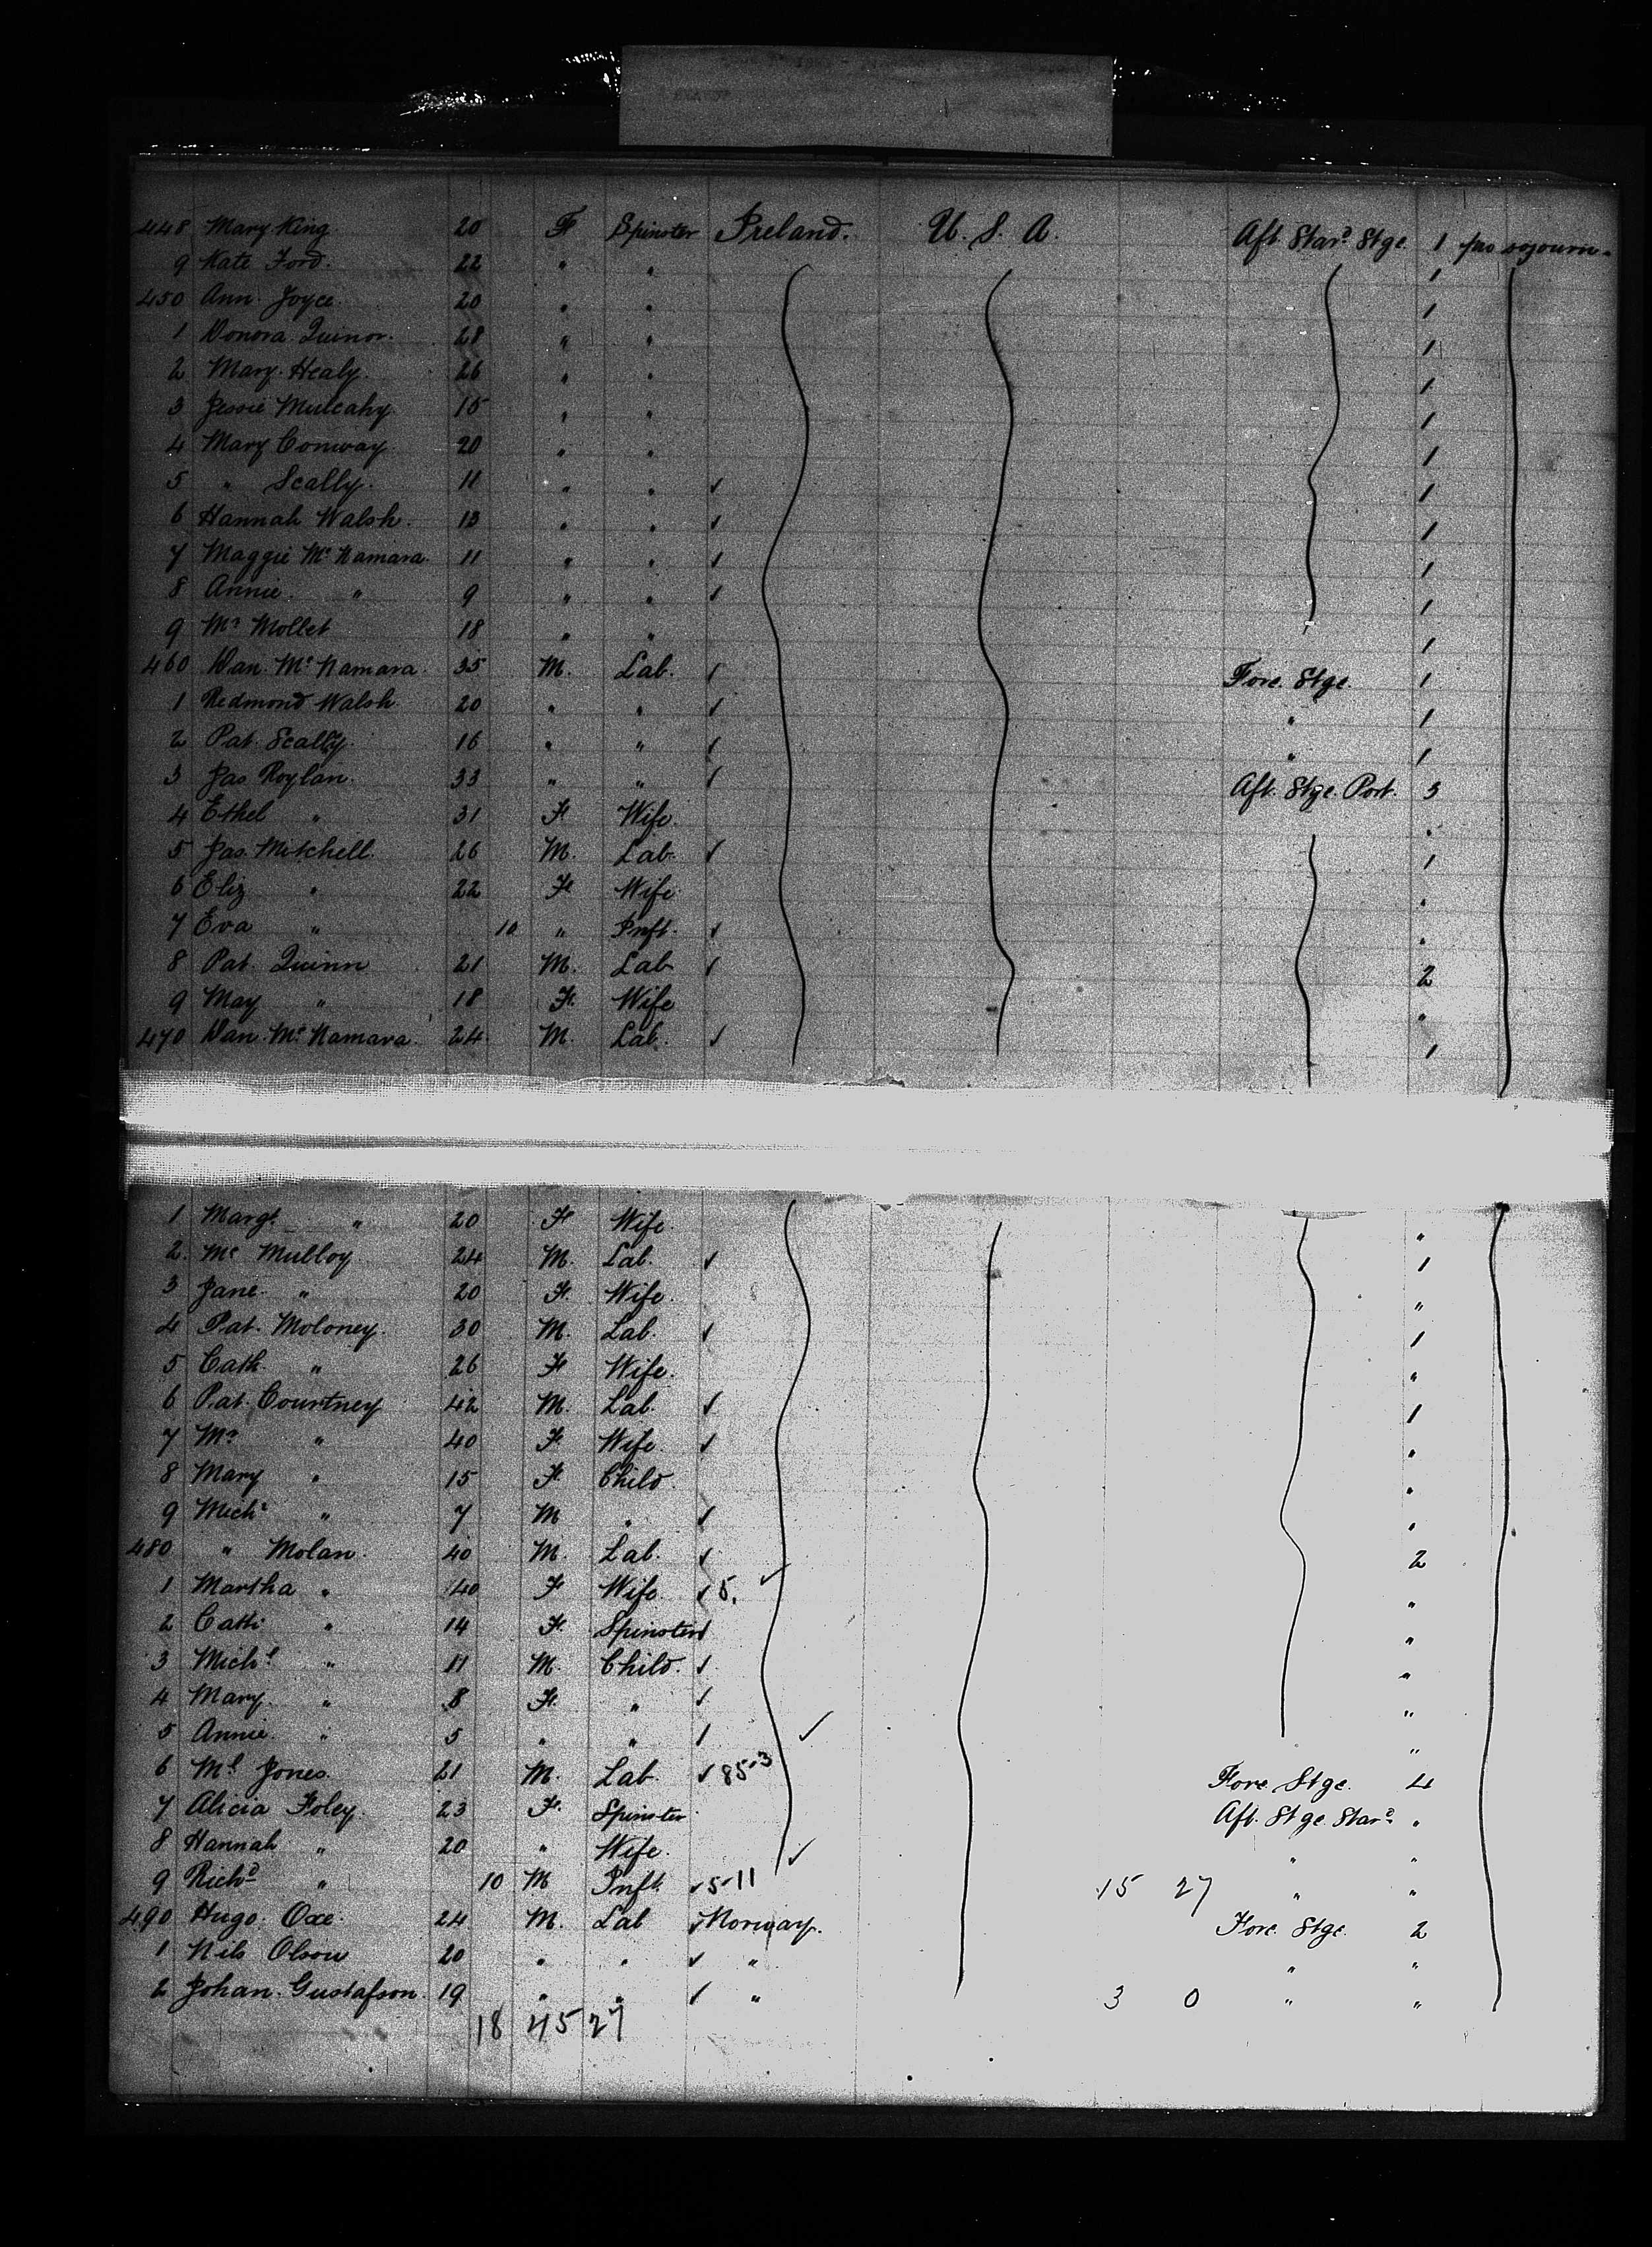 448 Mary King. 20 F Spinster Ireland. U. S. A. Aft. Star^d Stge. 1 pro sojourn.
9 Kate Ford. 22 " " 1
450 Ann Joyce. 20 " " 1
1 Honora 28 " " 1
2 Mary Healy. 26 " " 1
3 Jessie Mulcahy 15 " " 1
4 Mary Conway 20 " " 1
5 " Scally. 11 " " 1
6 Hannah Walsh. 13 " " 1
7 Maggie McNamara. 11 " " 1
8 Annie " 9 " " 1
9 Mollet 18 " " 1
460 Dan. McNamara. 35 M. Lab. Fore. Stge. 1
1 Redmond Walsh 20 " " " 1
2 Pat. Scally. 16 " " " 1
3 Jas Roylan. 33 " " Aft. Stge. Port. 3
4 Ethel " 31 F Wife. "
5 Jas. Mitchell. 26 M. Lab. 1
6 Eliz " 22 F Wife. "
7 Eva " 10 " Inft. "
8 Pat. Quinn 21 M. Lab 2
9 May " 18 F. Wife "
470 Dan. McNamara. 24 M. Lab. 1
1 Margt. " 20 F Wife. "
2. Mc Mulloy 24 M. Lab. 1
3 Jane. " 20 F. Wife. "
4 Pat. Moloney. 30 M. Lab. 1
5 Cath. " 26 F Wife. "
6 Pat. Courtney 42 M. Lab 1
7 " 40 F. Wife. "
8 Mary " 15 F. Child. "
9 Mich^l " 7 M " "
480 " Molan. 40 M. Lab. 2
1 Martha " 40 F Wife. 5. "
2 Cath " 14 F. Spinster "
3 Mich^l " 11 M. Child. "
4 Mary. " 8 F. " "
5 Annie. " 5 " " "
6 M^l Jones. 21 M. Lab. 85-3 Fore. Stge. 4
7 Alicia Foley. 23 F. Spinster Aft. Stge. Star^d "
8 Hannah " 20 " Wife. " "
9 Rich^d " 10 M Inft. 5-11 15 27 " "
490 Hugo. Oxe. 24 M. Lab Norway. Fore. Stge. 2
1 Nils Olson 20 " " " " "
2 Johan. Gustafson. 19 " " " 3 0 " "
18 45 27